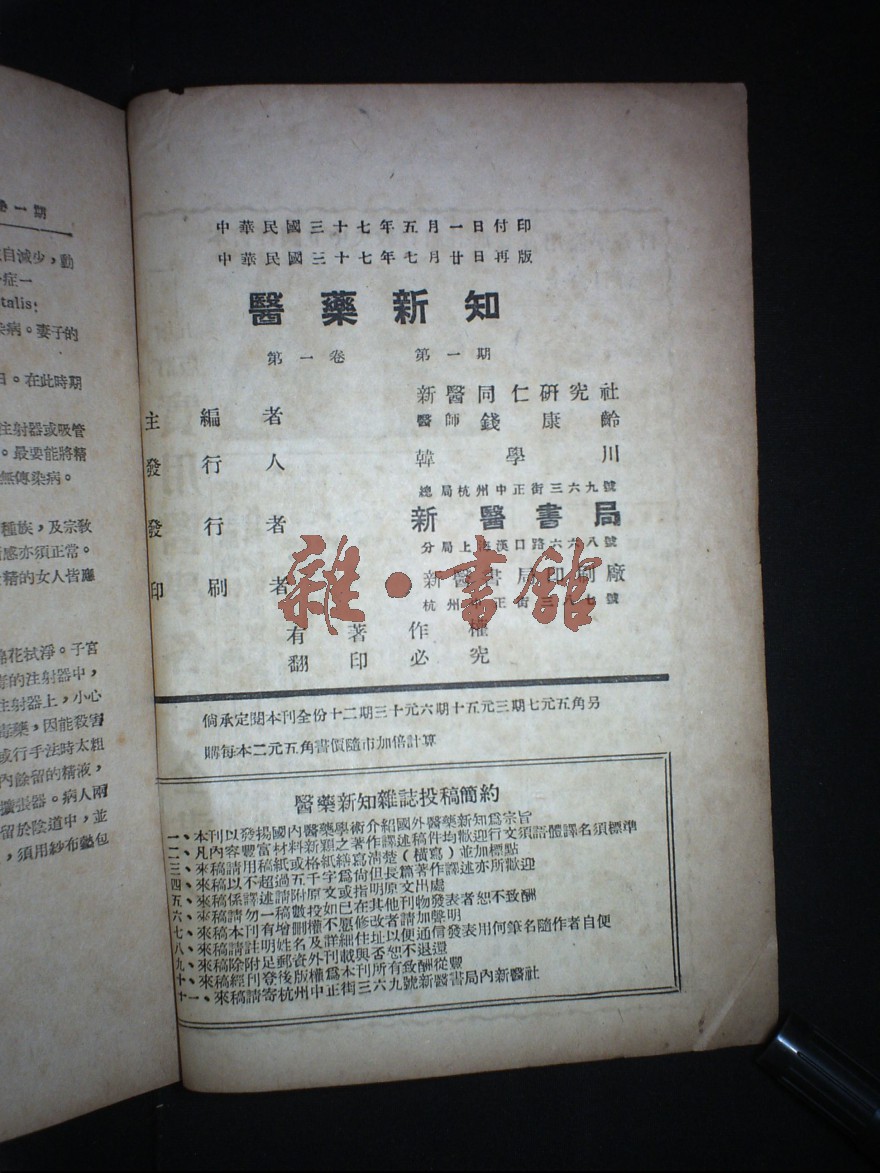 卷一期
自減少，動
症一
talis:
染病。妻子的
日。在此時期
注射器或吸管
。最要能將精
無傳染病。
種族，及宗教
感亦須正常。
精的女人皆應
棉花拭淨。子宮
毒的注射器中，
注射器上，小心
毒藥，因能殺害
或行手法時太粗
內餘留的精液，
擴張器。病人兩
留於陰道中，並
，須用紗布墊包
中華民國三十七年五月一日付印
中華民國三十七年七月廿日再版
醫藥新知
第一卷 第一期
主編者 新醫同仁研究社
醫師 錢康齡
發行人 韓學川
總局杭州中正街三六九號
發行者 新醫書局
分局上海漢口路六六八號
印刷者 新醫書局印刷廠
杭州中正街三八七號
雜·書館
有著作權
翻印必究
倘承定閱本刊全份十二期三十元六期十五元三期七元五角另
購每本二元五角書價隨市加倍計算
醫藥新知雜誌投稿簡約
一、本刊以發揚國內醫藥學術介紹國外醫藥新知爲宗旨
二、凡內容豐富材料新穎之著作譯述稿件均歡迎行文須語體譯名須標準
三、來稿請用稿紙或格紙繕寫清楚（橫寫）並加標點
四、來稿以不超過五千字爲尙但長篇著作譯述亦所歡迎
五、來稿係譯述請附原文或指明原文出處
六、來稿請勿一稿數投如已在其他刊物發表者恕不致酬
七、來稿本刊有增刪權不愿修改者請加聲明
八、來稿請註明姓名及詳細住址以便通信發表用何筆名隨作者自便
九、來稿除附足郵資外刊載與否恕不退還
十、來稿經刊登後版權爲本刊所有致酬從豐
十一、來稿請寄杭州中正街三六九號新醫書局內新醫社